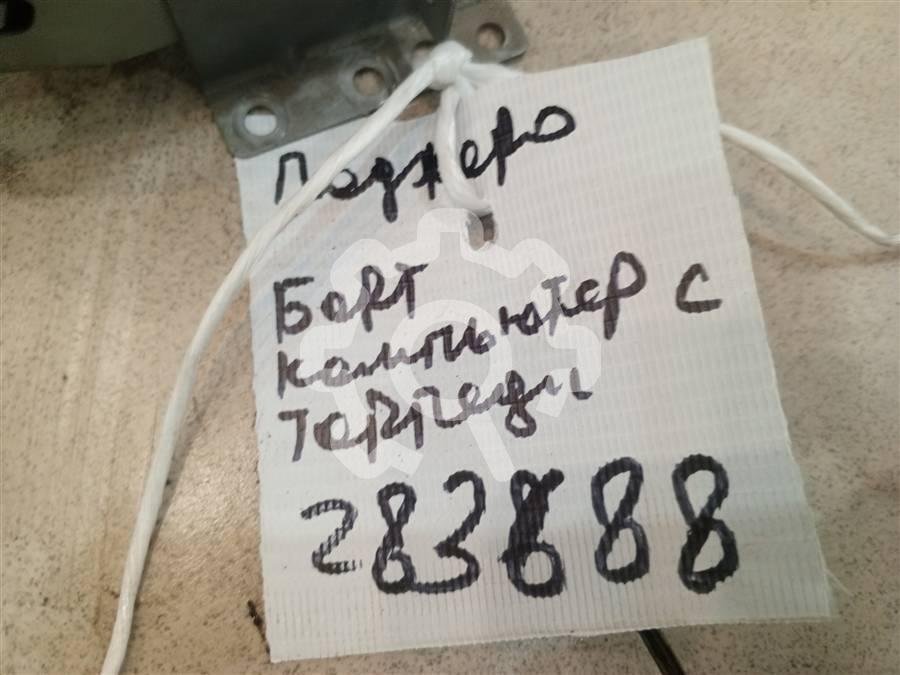 Паджеро
Борт
компьютер с
торпеды
283688